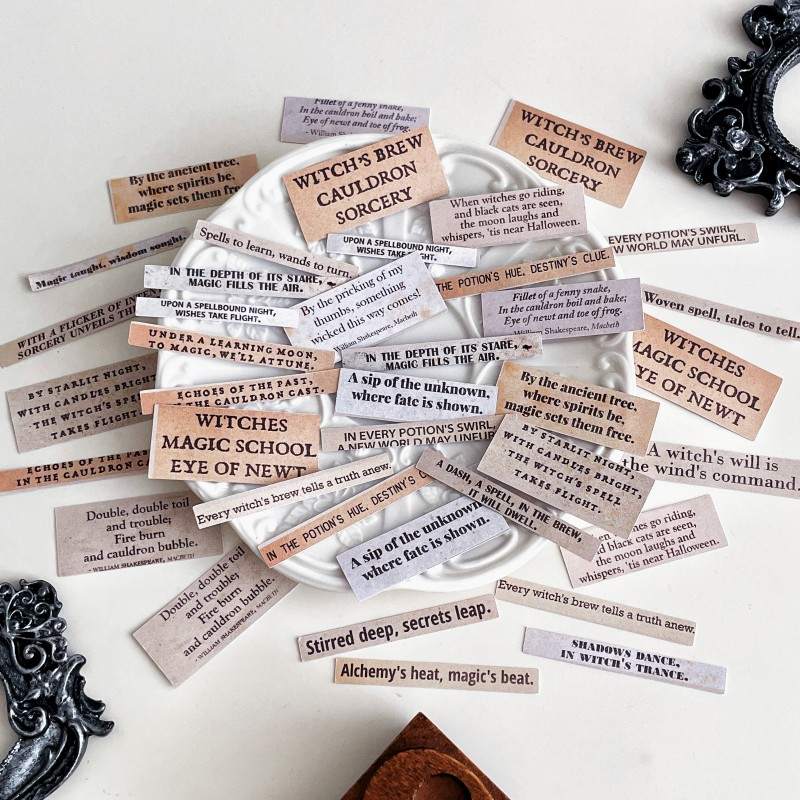 Fillet of a fenny snake,
In the cauldron boil and bake;
Eye of newt and toe of frog.
WITCH'S BREW
CAULDRON
SORCERY
WITCH'S BREW
CAULDRON
SORCERY
By the ancient tree,
where spirits be,
magic sets them
When witches go riding,
and black cats are seen,
the moon laughs and
whispers, 'tis near Halloween.
Magic taught, wisdom sought.
Spells to learn, wands to turn.
UPON A SPELLBOUND NIGHT,
WISHES TAKE FLIGHT.
EVERY POTION'S SWIRL,
WORLD MAY UNFURL.
IN THE DEPTH OF ITS STARE,
MAGIC FILLS THE AIR.
By the pricking of my
thumbs, something
wicked this way comes!
William Shakespeare, Macbeth
THE POTION'S HUE, DESTINY'S CLUE.
Fillet of a fenny snake,
In the cauldron boil and bake;
Eye of newt and toe of frog.
William Shakespeare, Macbeth
Woven spell, tales to tell.
WITH A FLICKER OF
SORCERY UNVEILS
UPON A SPELLBOUND NIGHT,
WISHES TAKE FLIGHT.
UNDER A LEARNING MOON,
TO MAGIC, WE'LL ATTUNE.
IN THE DEPTH OF ITS STARE,
MAGIC FILLS THE AIR.
WITCHES
MAGIC SCHOOL
EYE OF NEWT
BY STARLIT NIGHT,
WITH CANDLES BRIGHT,
THE WITCH'S SPELL
TAKES FLIGHT.
ECHOES OF THE PAST,
IN THE CAULDRON CAST.
A sip of the unknown,
where fate is shown.
By the ancient tree,
where spirits be,
magic sets them free.
WITCHES
MAGIC SCHOOL
EYE OF NEWT
IN EVERY POTION'S SWIRL,
A NEW WORLD MAY UNFURL
BY STARLIT NIGHT,
WITH CANDLES BRIGHT,
THE WITCH'S SPELL
TAKES FLIGHT.
A witch's will is
the wind's command.
ECHOES OF THE PAST,
IN THE CAULDRON
Every witch's brew tells a truth anew.
IN THE POTION'S HUE, DESTINY'S
A DASH, A SPELL, IN THE BREW,
IT WILL DWELL.
Double, double toil
and trouble;
Fire burn
and cauldron bubble.
- WILLIAM SHAKESPEARE, MACBETH
A sip of the unknown,
where fate is shown.
go riding,
black cats are seen,
the moon laughs and
whispers, 'tis near Halloween.
Double, double toil
and trouble;
Fire burn
and cauldron bubble.
- WILLIAM SHAKESPEARE, MACBETH
Every witch's brew tells a truth anew.
Stirred deep, secrets leap.
SHADOWS DANCE,
IN WITCH'S TRANCE.
Alchemy's heat, magic's beat.